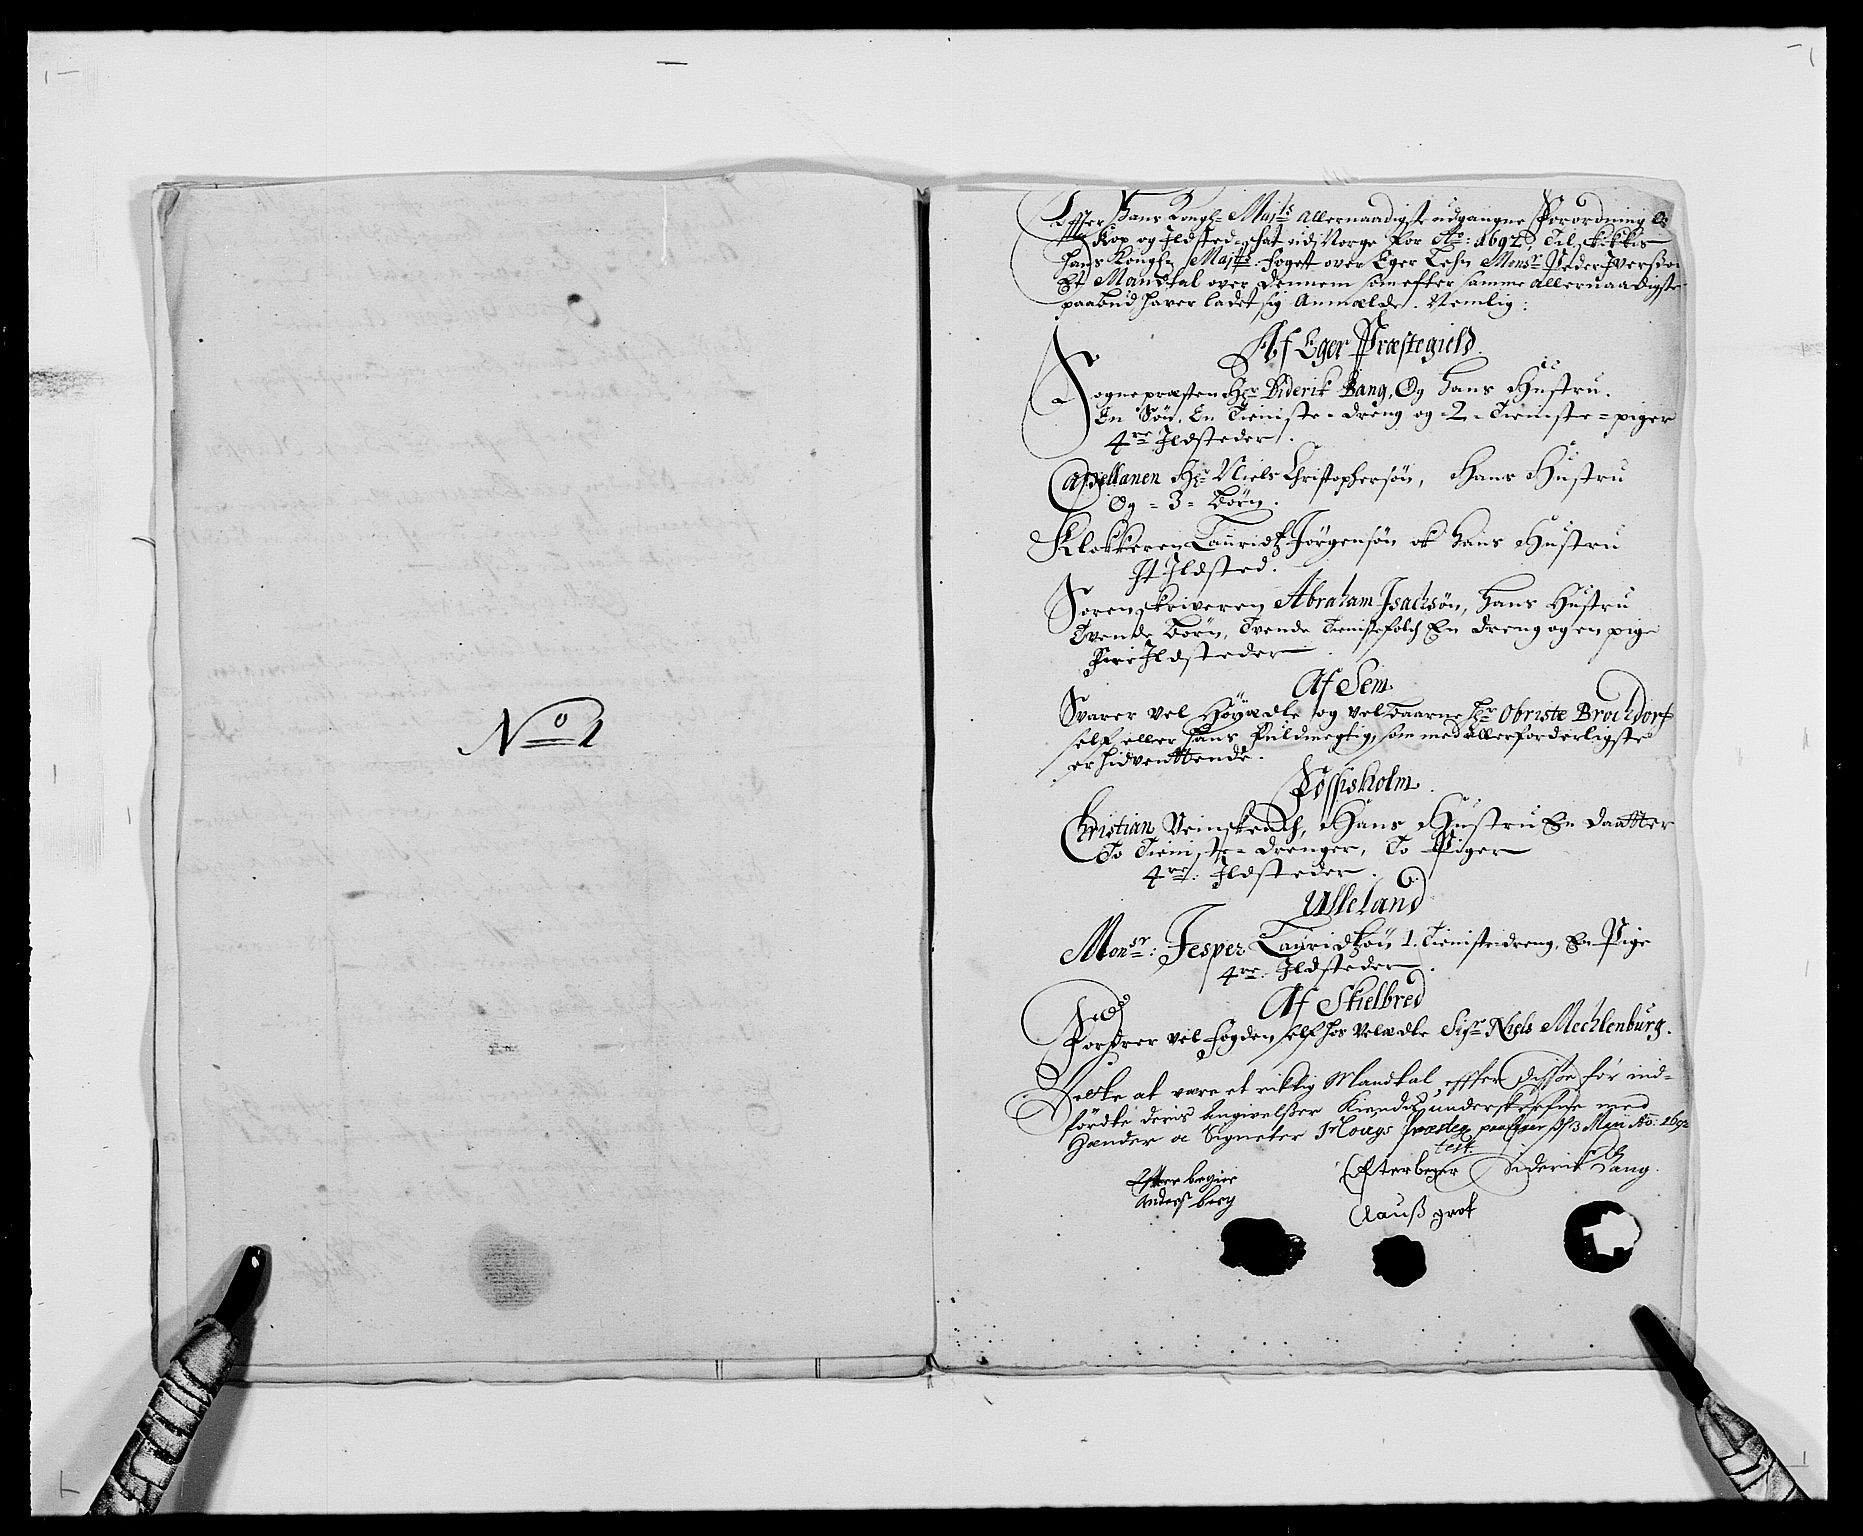 No 1
Effter Hans Kongl: Majts allernaadigste udgangne Forordning Om
Kop og Ildsted-schat udj Norge for Ao: 1692, Tilskikkis
Hans Kongln Majtts: Foget over Eger Lehn Monsr Peder Iverssøn
Et Mandtal over dennem som efter samme allernaadigste
paabud haver ladet sig Anmælde. Nemlig:
Af Eger Præstegield
Sognepræsten Hr Diderik Bang, Og Hans Hustru.
En Søn, En Tieniste-dreng og 2 Tieniste-piger
4re Ildsteder.
Capellanen Hr Niels Christophersøn, Hans Hustru
Og = 3 = Børn.
Klokkeren Lauridtz Jørgensøn ok Hans Hustru
It Ildsted.
Sorenskriveren Abraham Isachsøn, Hans Hustru
Tvende Børn, Tvende Tienistefolch En dreng og en pige
Fire Ildsteder
Af Sem
Svarer vel Høyædle og velbaarne Hr Obriste Brochdorf
self eller Hans Fuldmegtig, som med allerforderligste
er hidventtende.
Fossisholm
Christian, Hans Hustru En daatter
To Tieniste-drenger, To Piger
4re: Ildsteder.
Ulleland
Monsr: Jesper Lauridtzøn 1. Tienistedreng, En Pige
4re: Ildsteder.
Af Skielbred
Fordrer vel Fogden self hos Velædle Sigr Niels Mechlenburg.
Dette at være et riktig Mandtal effter disse for ind-
førdte deris Angivelsser Kiendis underskrefne med
Hænder oc Signeter Hougs præstegaard 3 Maii Ao: 1692
test.
Efter begier
Anders berg
Efterbeger
Clauss grof
Diderik Bang.